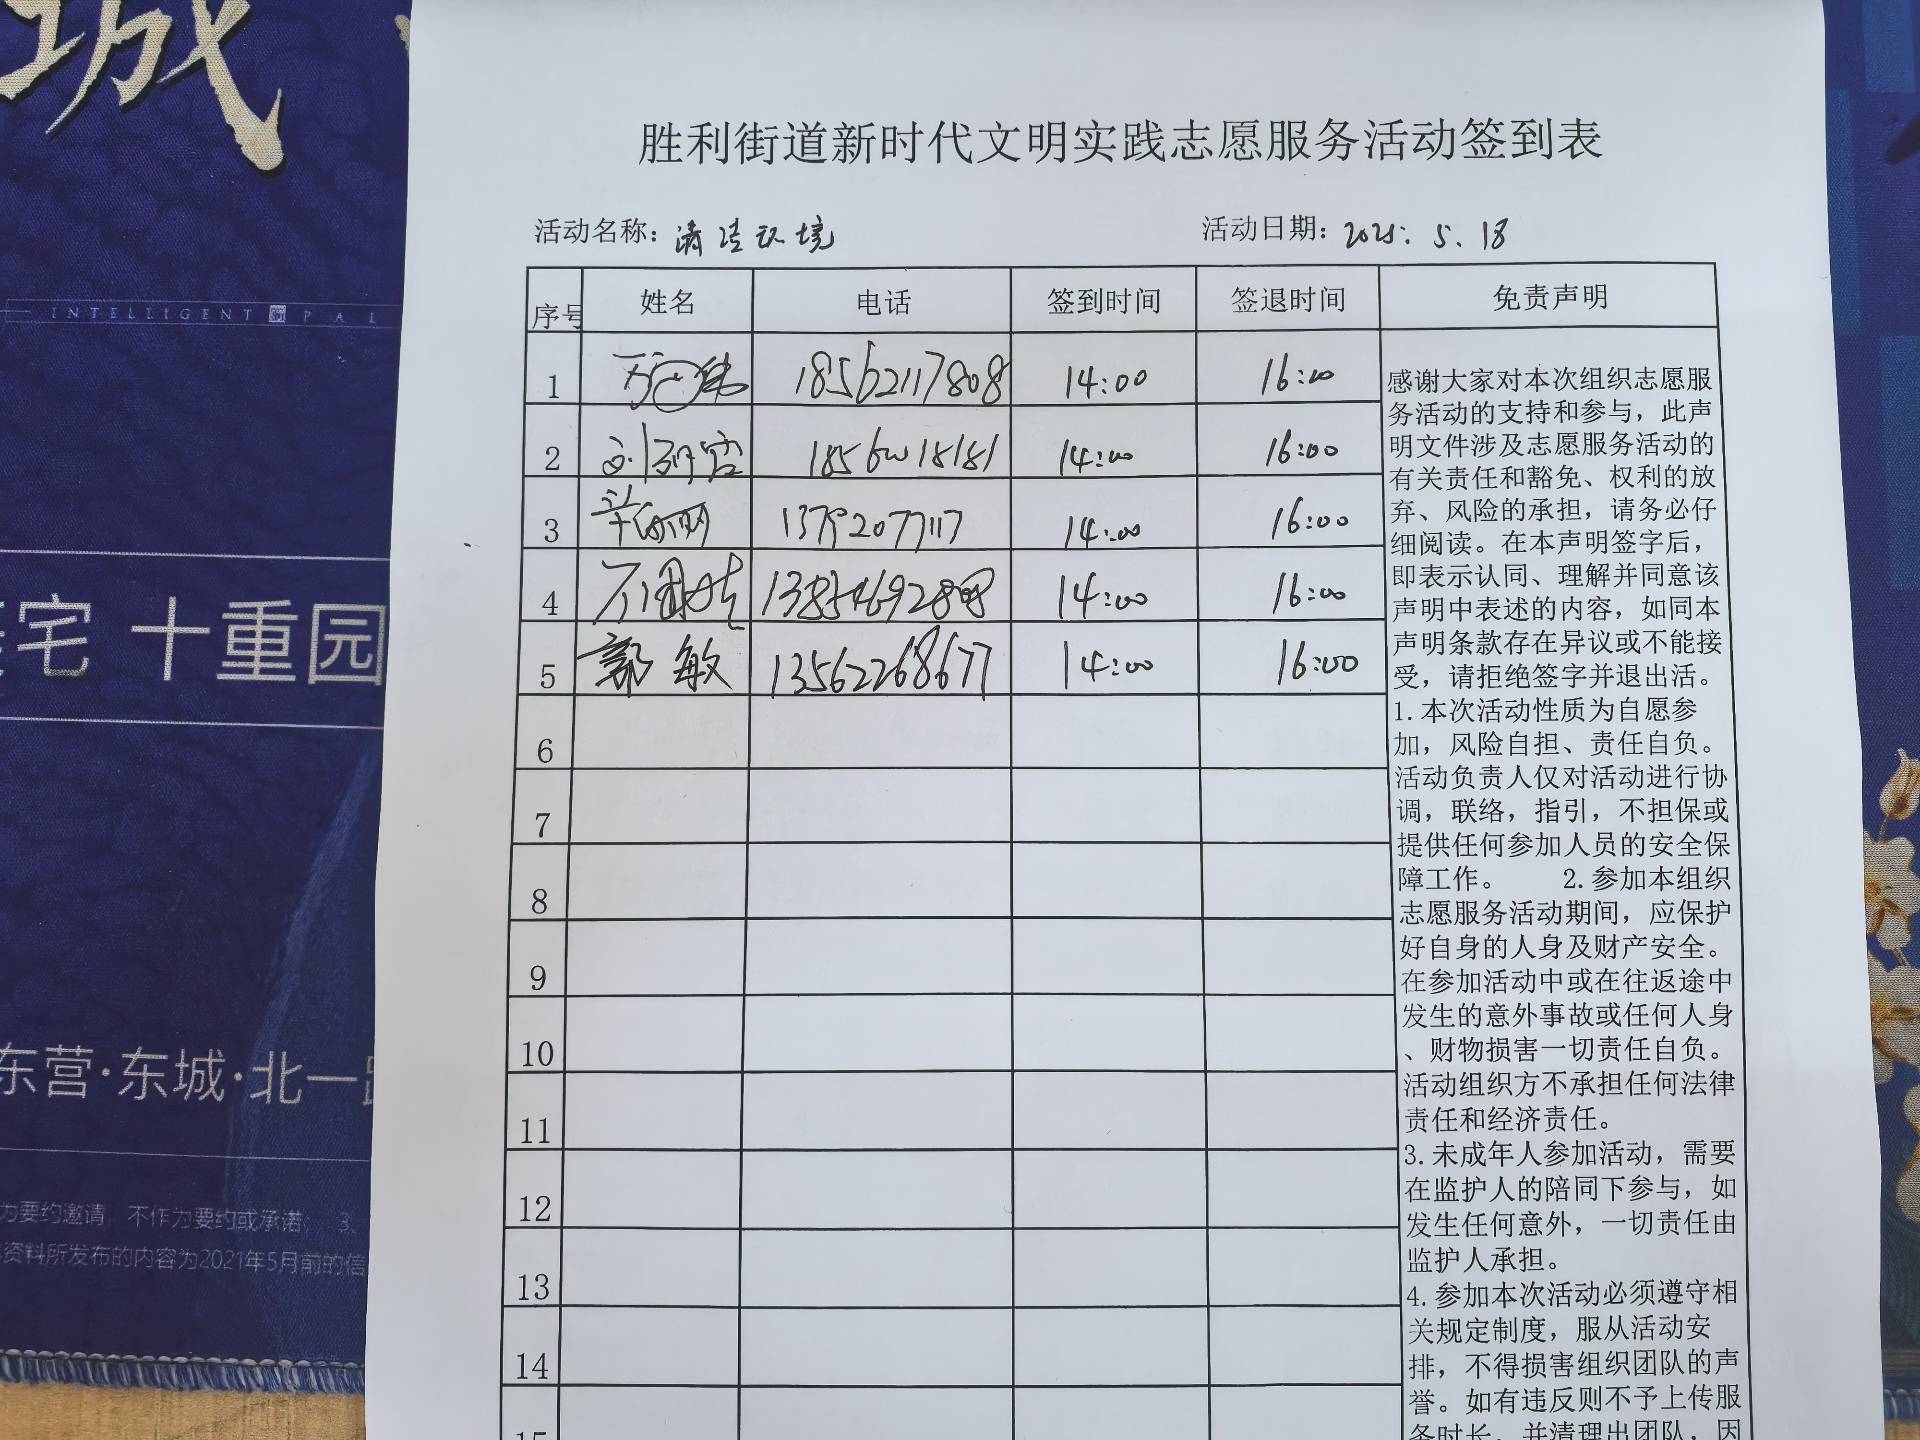 城
INTELLIGENT PAL
宅 十重园
东营·东城·北一
为要约邀请，不作为要约或承诺； 3、
资料所发布的内容为2021年5月前的信
胜利街道新时代文明实践志愿服务活动签到表
活动名称：清洁环境 活动日期：2025.5.18
序号 姓名 电话 签到时间 签退时间 免责声明
1 18562117808 14:00 16:00
2 14:00 16:00
3 13792077117 14:00 16:00
4 14:00 16:00
5 郭敏 13562268677 14:00 16:00
6
7
8
9
10
11
12
13
14
15
感谢大家对本次组织志愿服
务活动的支持和参与，此声
明文件涉及志愿服务活动的
有关责任和豁免、权利的放
弃、风险的承担，请务必仔
细阅读。在本声明签字后，
即表示认同、理解并同意该
声明中表述的内容，如同本
声明条款存在异议或不能接
受，请拒绝签字并退出活。
1.本次活动性质为自愿参
加，风险自担、责任自负。
活动负责人仅对活动进行协
调，联络，指引，不担保或
提供任何参加人员的安全保
障工作。 2.参加本组织
志愿服务活动期间，应保护
好自身的人身及财产安全。
在参加活动中或在往返途中
发生的意外事故或任何人身
、财物损害一切责任自负。
活动组织方不承担任何法律
责任和经济责任。
3.未成年人参加活动，需要
在监护人的陪同下参与，如
发生任何意外，一切责任由
监护人承担。
4.参加本次活动必须遵守相
关规定制度，服从活动安
排，不得损害组织团队的声
誉。如有违反则不予上传服
务时长，并清理出团队，因